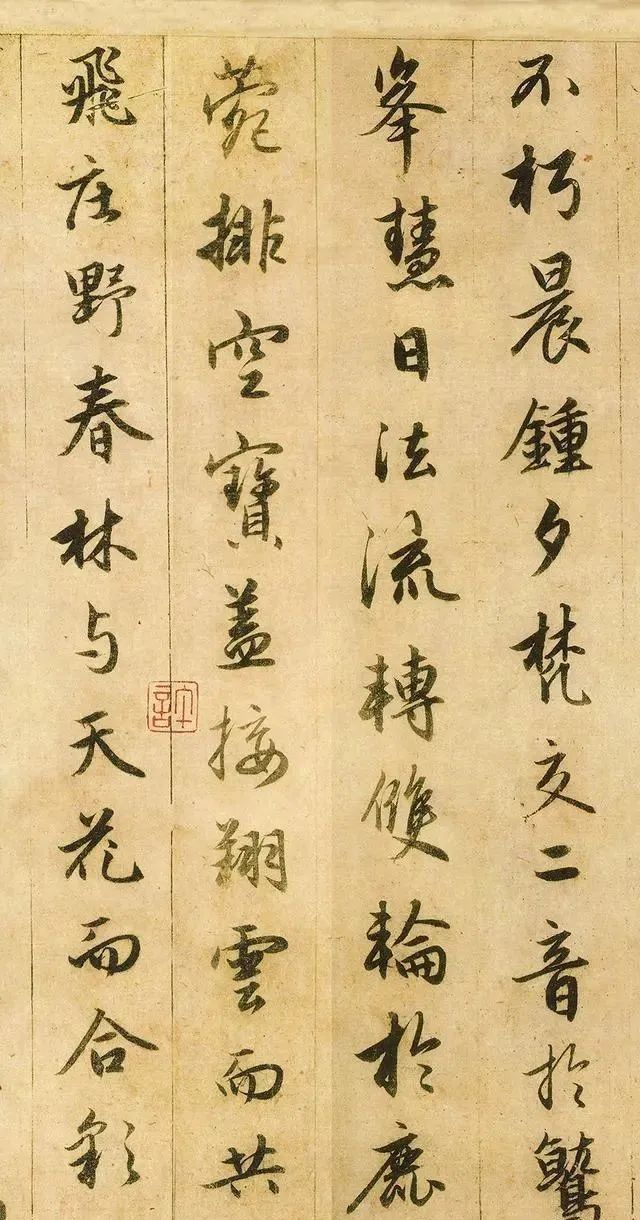 不朽晨鍾夕梵交二音於鷲
峯慧日法流轉雙輪於鹿
菀排空寶盖接翔雲而共
飛庄野春林与天花而合彩